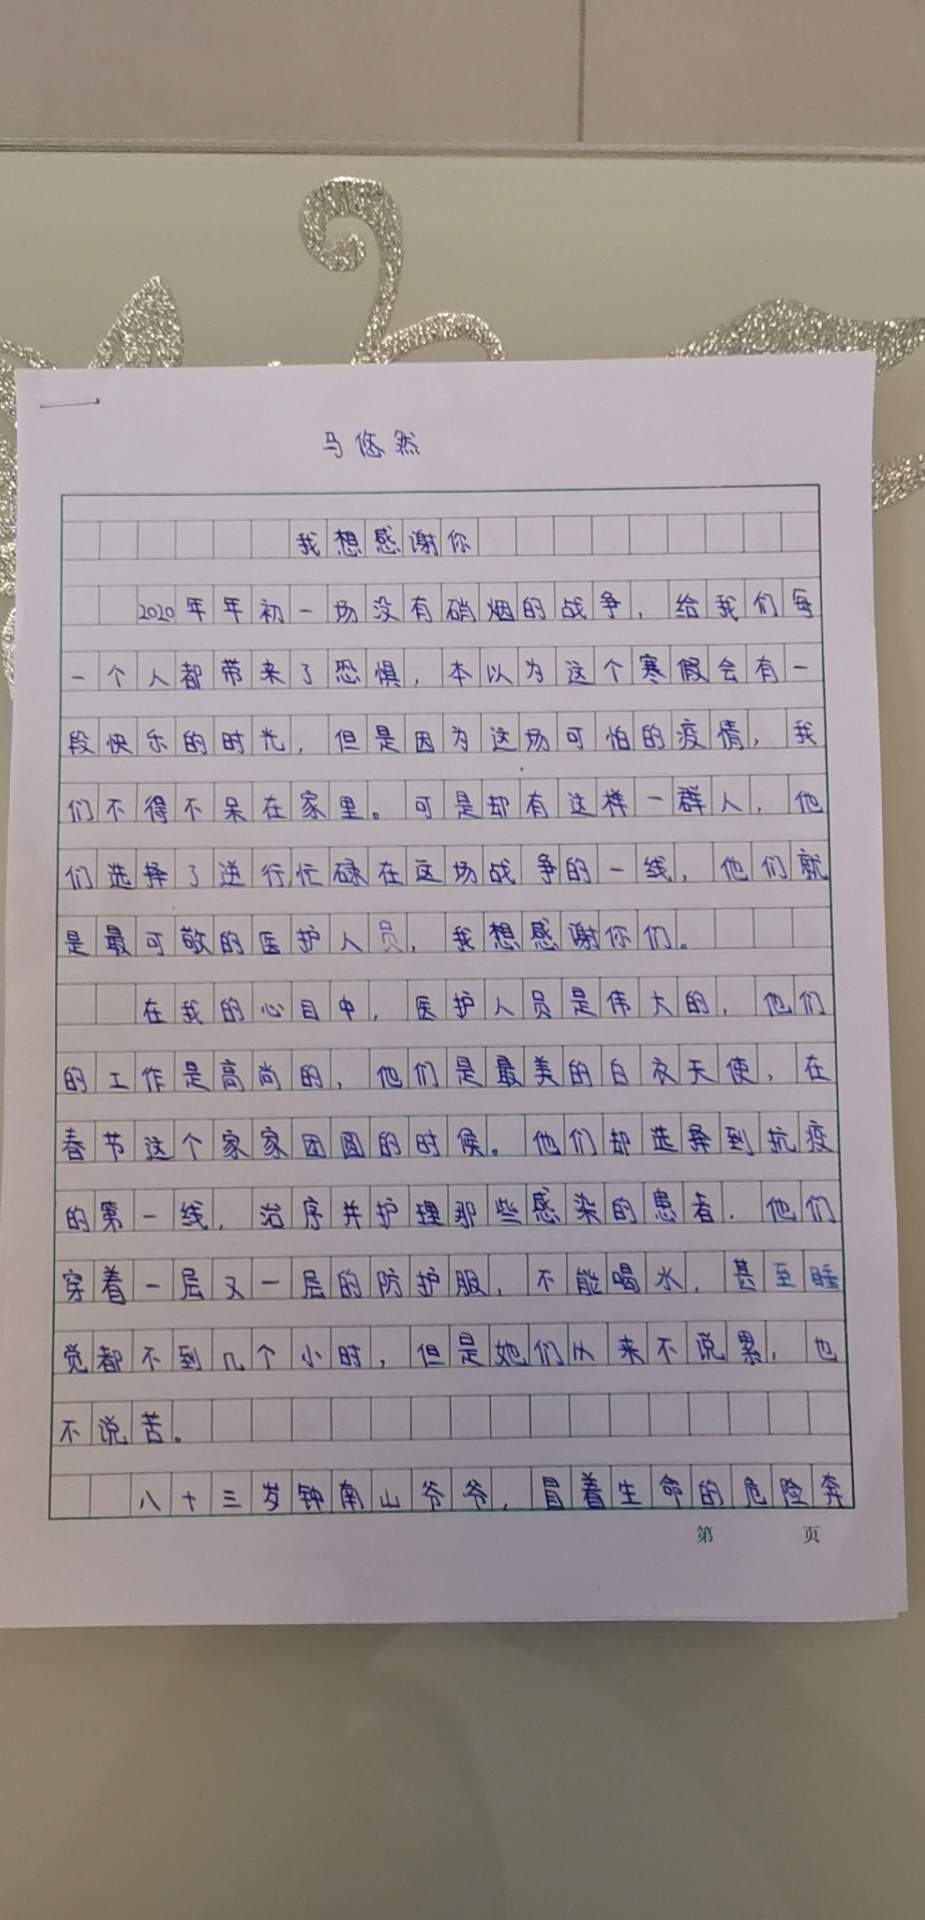 马悠然
我想感谢你
2020年年初一场没有硝烟的战争，给我们每
一个人都带来了恐惧，本以为这个寒假会有一
段快乐的时光，但是因为这场可怕的疫情，我
们不得不呆在家里。可是却有这样一群人，他
们选择了逆行忙碌在这场战争的一线，他们就
是最可敬的医护人员，我想感谢你们。
在我的心目中，医护人员是伟大的，他们
的工作是高尚的，他们是最美的白衣天使，在
春节这个家家团圆的时候。他们却选择到抗疫
的第一线，治疗并护理那些感染的患者．他们
穿着一层又一层的防护服，不能喝水，甚至睡
觉都不到几个小时，但是她们从来不说累，也
不说苦。
八十三岁钟南山爷爷，冒着生命的危险奔
第 页